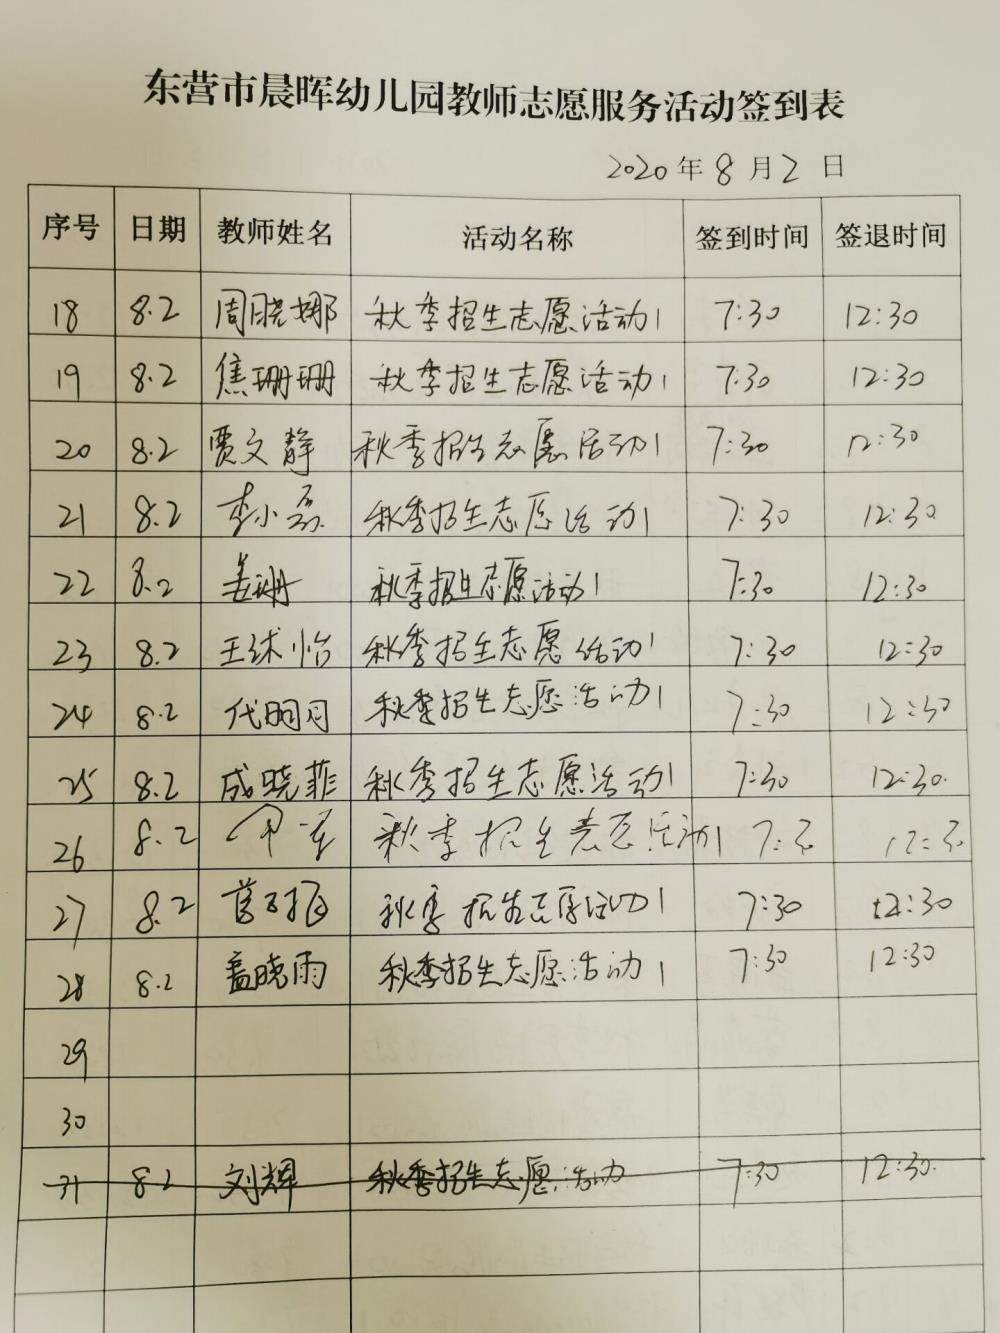 东营市晨晖幼儿园教师志愿服务活动签到表
2020年8月2日
序号 日期 教师姓名 活动名称 签到时间 签退时间
18 8.2 周晓娜 秋季招生志愿活动1 7:30 12:30
19 8.2 焦珊珊 秋季招生志愿活动1 7:30 12:30
20 8.2 贾文静 秋季招生志愿活动1 7:30 12:30
21 8.2 李小磊 秋季招生志愿活动1 7:30 12:30
22 8.2 姜珊 秋季招生志愿活动1 7:30 12:30
23 8.2 王 怡 秋季招生志愿活动1 7:30 12:30
24 8.2 代明月 秋季招生志愿活动1 7:30 12:30
25 8.2 成晓菲 秋季招生志愿活动1 7:30 12:30
26 8.2 秋季招生志愿活动1 7:30 12:30
27 8.2 秋季招生志愿活动1 7:30 12:30
28 8.2 盖晓雨 秋季招生志愿活动1 7:30 12:30
29
30
31 8.2 刘辉 秋季招生志愿活动 7:30 12:30